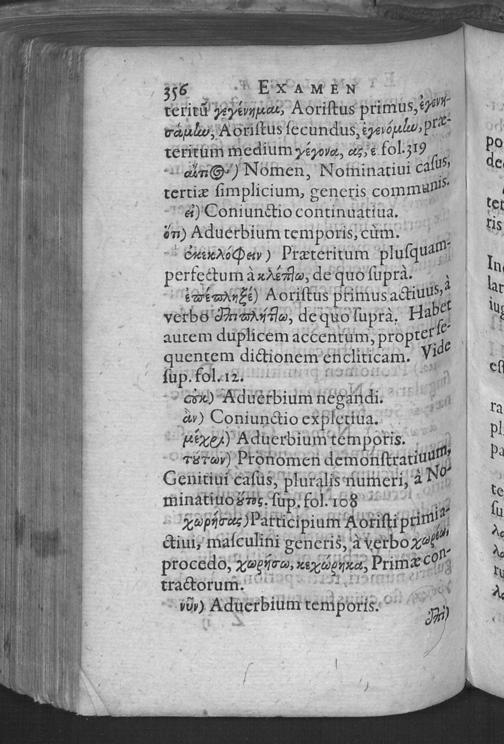 356 EXAMEN
teritū γεγένημαι, Aoristus primus, ἐγενη-
σάμω, Aoristus secundus, ἐγενόμω, præ-
teritum medium γέγονα, ας, ε fol.319
) Nomen, Nominatiui casus,
tertiæ simplicium, generis communis.
εἰ) Coniunctio continuatiua.
ὅτι) Aduerbium temporis, cùm.
ἐκεκλόφειν) Præteritum plusquam-
perfectum à κλέπτω, de quo suprà.
ἐπέπληξέ) Aoristus primus actiuus, à
verbo ἐπιπλήττω, de quo suprà. Habet
autem duplicem accentum, propter se-
quentem dictionem encliticam. Vide
sup. fol. 12.
οὐκ) Aduerbium negandi.
ἂν) Coniunctio expletiua.
μέχρι) Aduerbium temporis.
τούτων) Pronomen demonstratiuum,
Genitiui casus, pluralis numeri, à No-
minatiuo οὗτος. sup. fol. 108
χωρήσας) Participium Aoristi primi a-
ctiui, masculini generis, à verbo χωρέω,
procedo, χωρήσω, κεχώρηκα, Primæ con-
tractorum.
νῦν) Aduerbium temporis.
ἐπὶ)